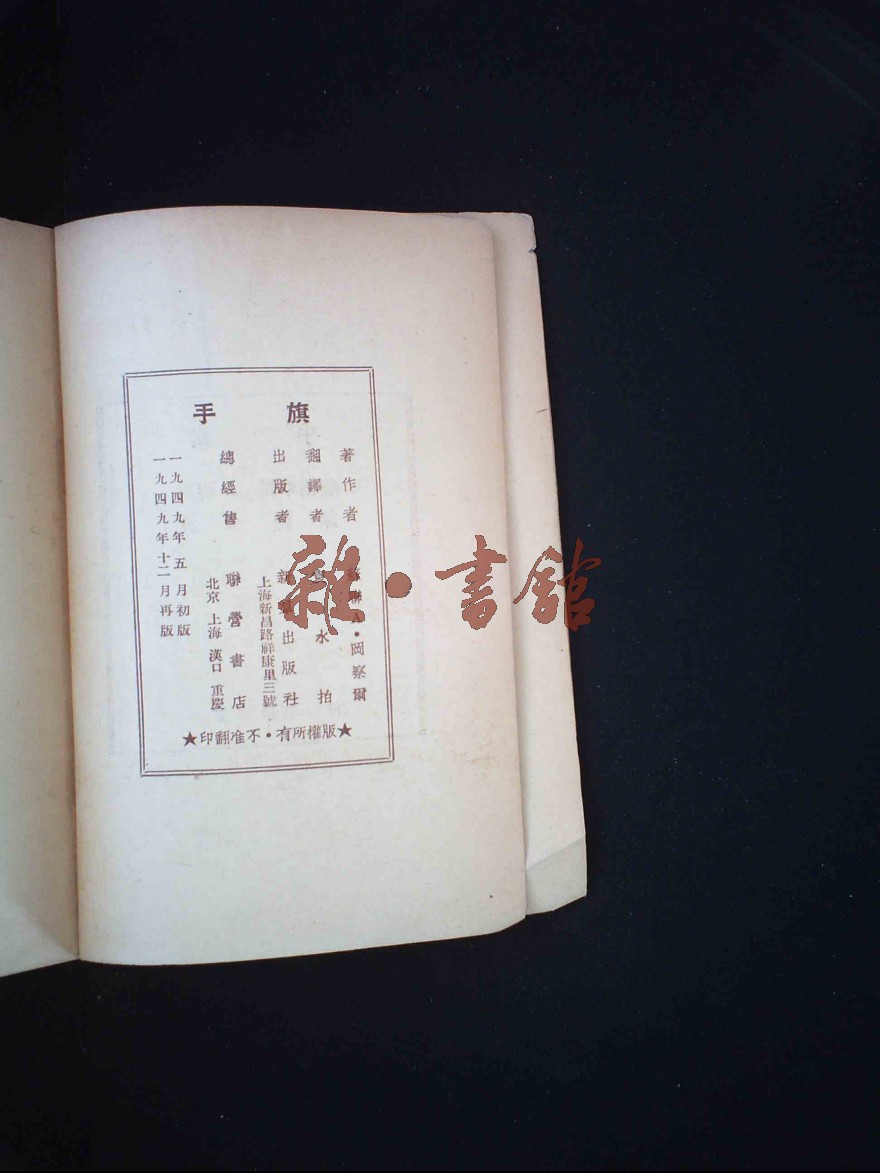 旗手
著作者 蘇聯A·岡察爾
翻譯者 水拍
出版者 新 出版社
上海新昌路祥康里三號
總經售 聯營書店
北京 上海 漢口 重慶
一九四九年五月初版
一九四九年十二月再版
★版權所有·不准翻印★
雜·書館